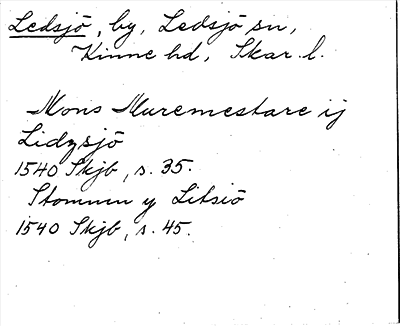 Ledsjö, by, Ledsjö sn,
Kinne hd, Skar. l.
Mons Muremestare ij
Lidzsjö
1540 Skjb, s. 35.
Stommen y Litsiö
1540 Skjb, s. 45.